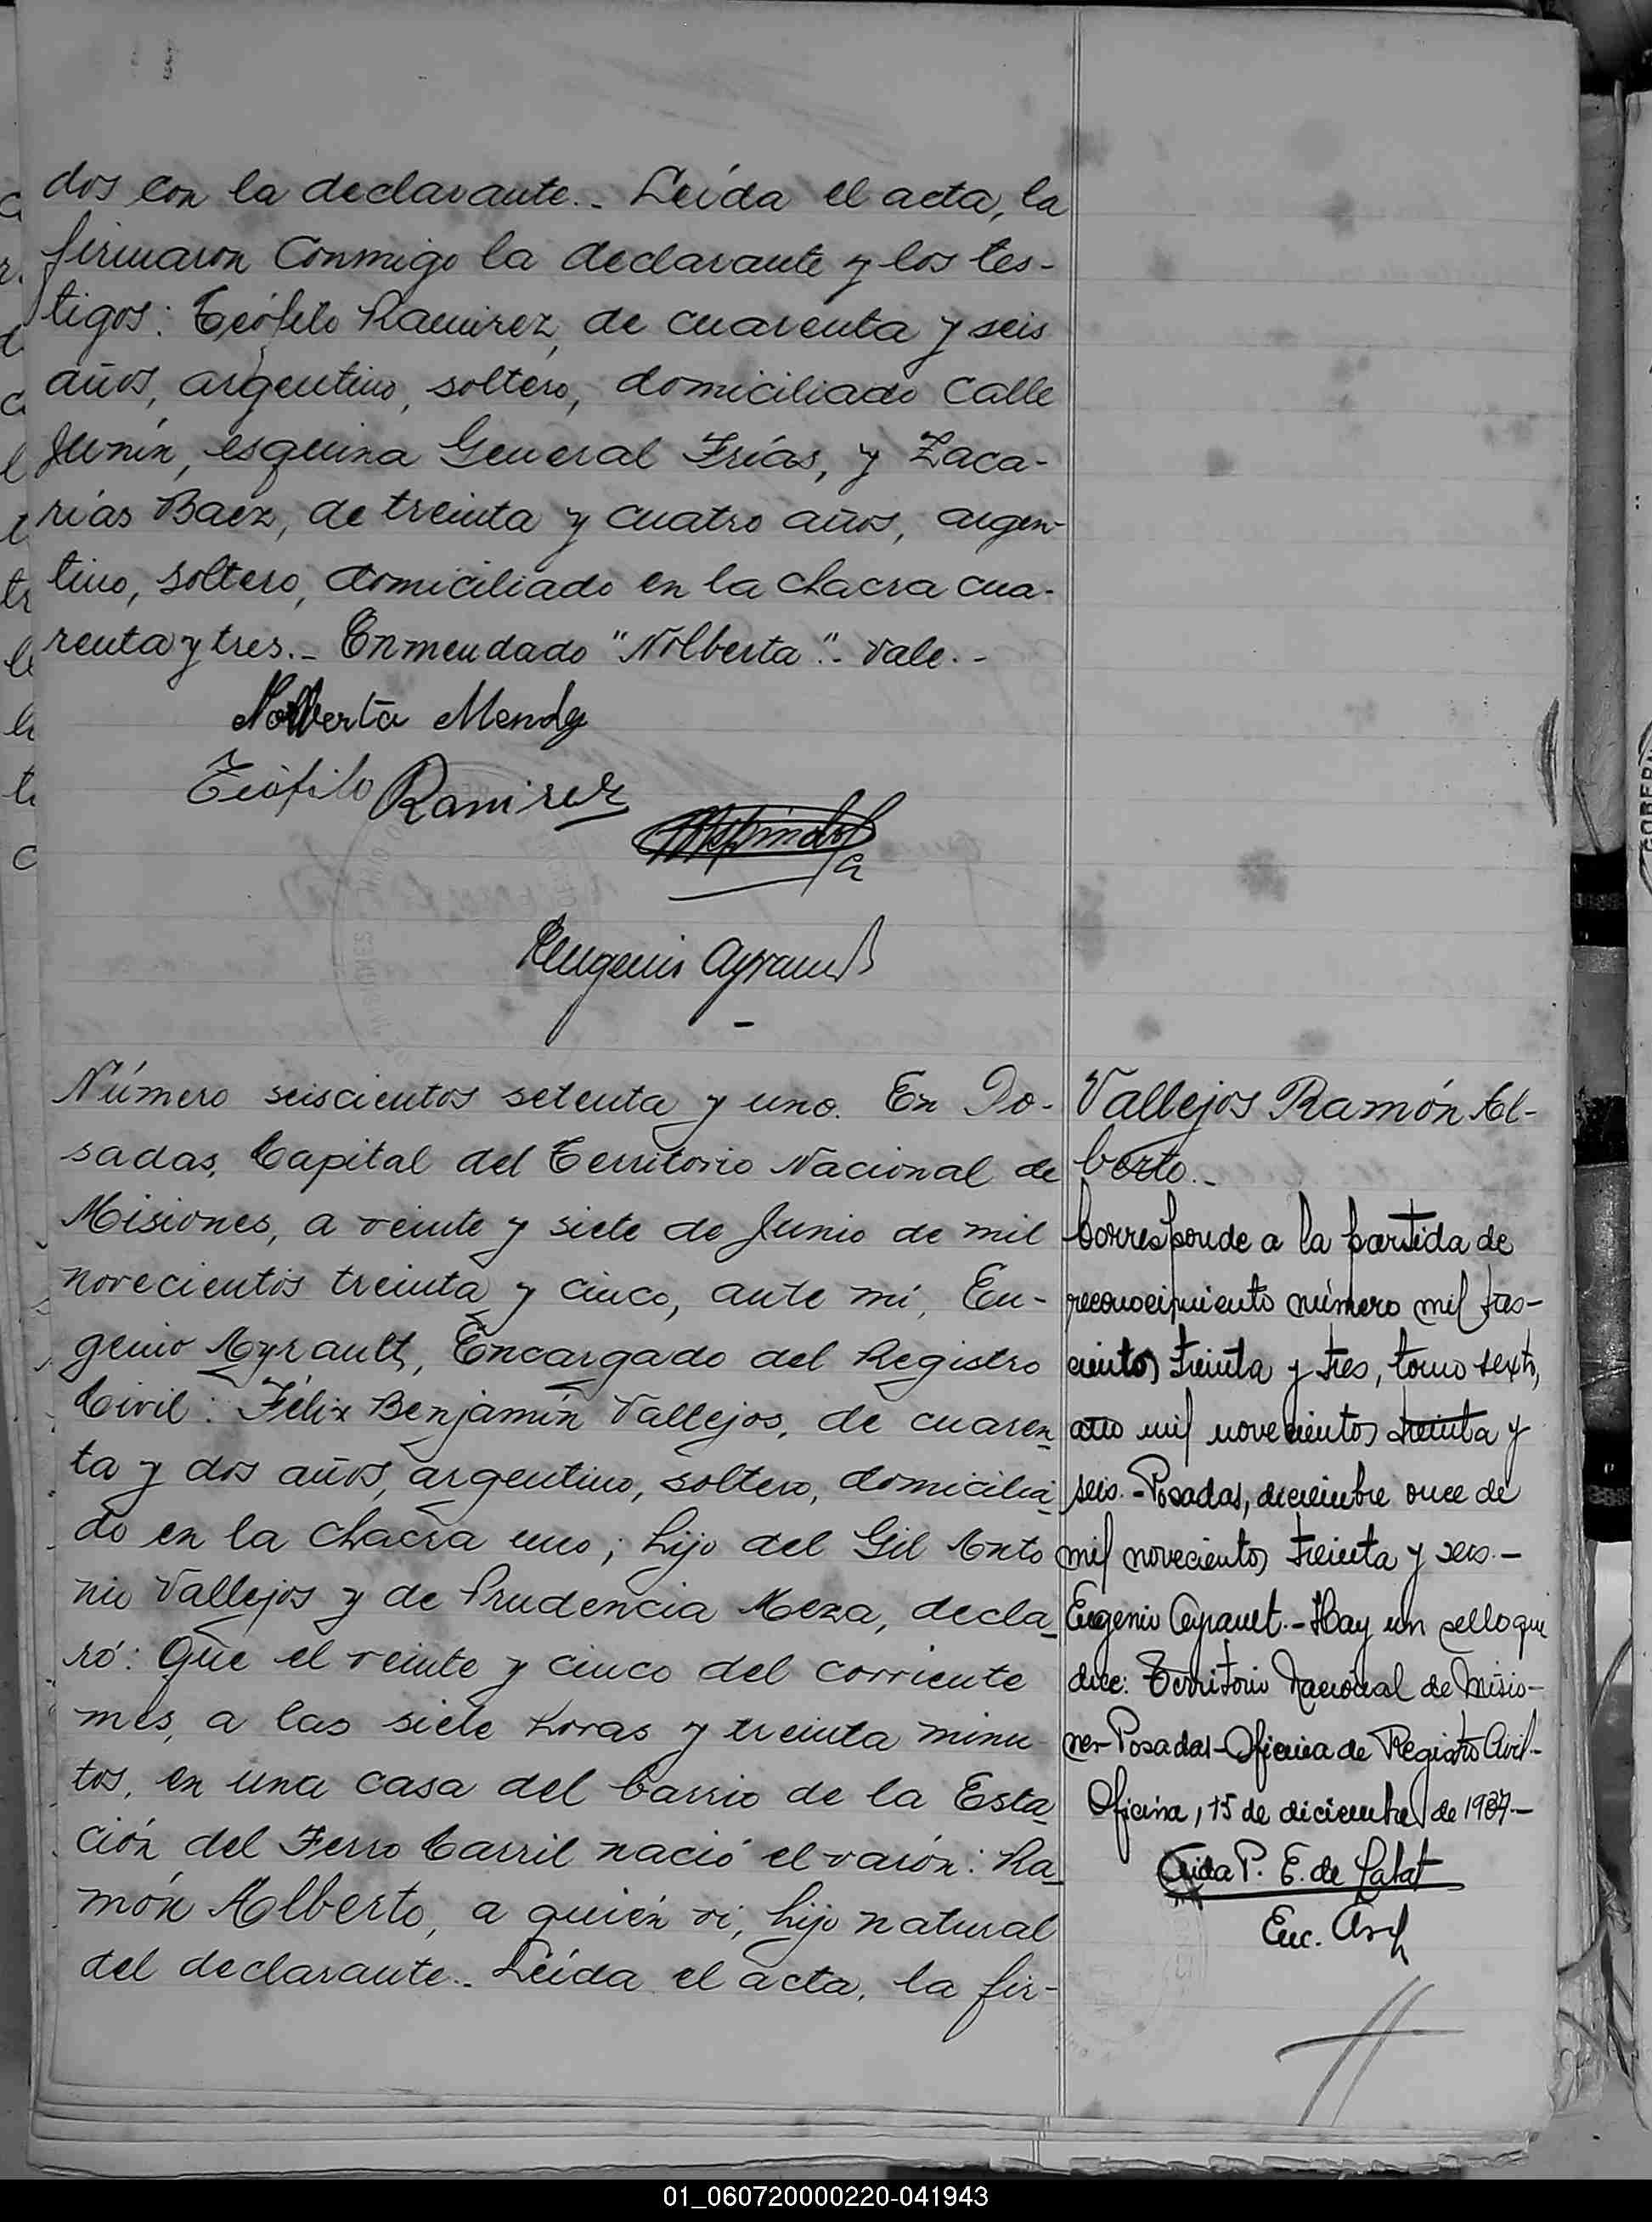 dos con la declarante.- Leída el acta, la
firmaron conmigo la declarante y los tes-
tigos: Teófilo Ramirez, de cuarenta y seis
años, argentino, soltero, domiciliado Calle
Junín, esquina General Frías, y Zaca-
rías Baez, de treinta y cuatro años, argen-
tino, soltero, domiciliado en la chacra cua-
renta y tres.- Enmendado "Nolberta".- Vale.-
Nolberta Mendez
Teófilo Ramirez
Eugenio Ayrault
Número seiscientos setenta y uno. En Po-
sadas, Capital del Territorio Nacional de
Misiones, a veinte y siete de Junio de mil
novecientos treinta y cinco, ante mí, Eu-
genio Ayrault, Encargado del Registro
Civil: Félix Benjamín Vallejos, de cuaren
ta y dos años, argentino, soltero, domicilia
do en la chacra uno; hijo del Gil Anto
nio Vallejos y de Prudencia Meza, decla
ró: Que el veinte y cinco del corriente
mes, a las siete horas y treinta minu
tos, en una casa del barrio de la Esta
ción del Ferro Carril nació el varón: Ra
món Alberto, a quién vi, hijo natural
del declarante.- Leída el acta, la fir-
Vallejos Ramón Al-
berto.-
Corresponde a la partida de
reconocimiento número mil tres-
cientos treinta y tres, tomo sexto,
año mil novecientos treinta y
seis.- Posadas, diciembre once de
mil novecientos treinta y seis.-
Eugenio Ayrault.- Hay un sello que
dice: Territorio Nacional de Misio-
nes-Posadas-Oficina de Registro Civil-
Oficina, 15 de diciembre de 1937-
P. E. de
Enc. Arch
01_060720000220-041943